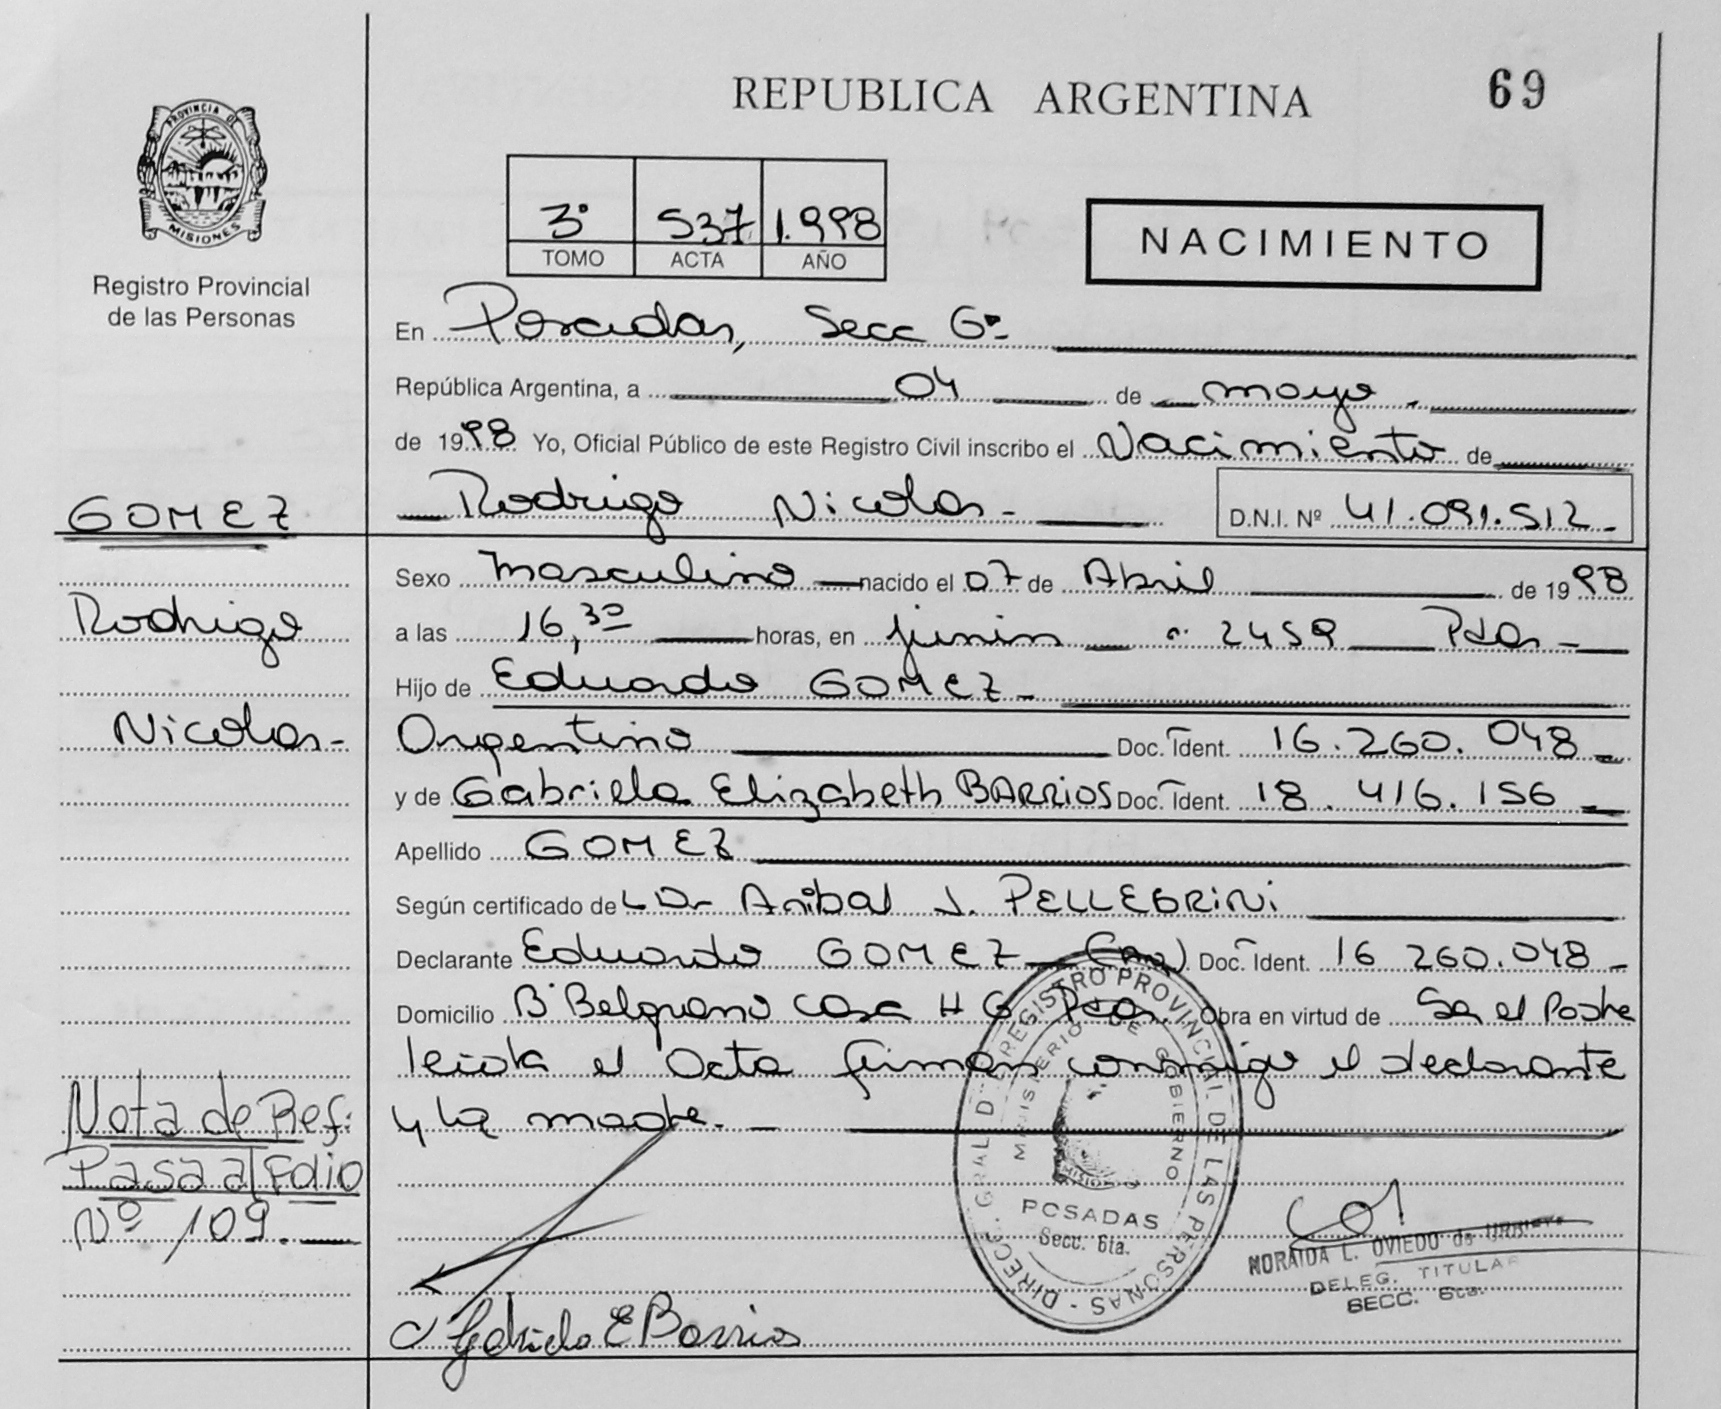 REPUBLICA ARGENTINA
69
PROVINCIA DE MISIONES
Registro Provincial
de las Personas
3° 537 1.998
TOMO ACTA AÑO
NACIMIENTO
En Posadas, Secc 6ª
República Argentina, a 04 de mayo
de 1998 Yo, Oficial Público de este Registro Civil inscribo el Nacimiento de
Rodrigo Nicolas - D.N.I. Nº 41.091.512-
GOMEZ
Sexo Masculino nacido el 07 de Abril de 1998
Rodrigo
a las 16,30 horas, en Junin 2459 Pdas-
Hijo de Eduardo GOMEZ-
Nicolas-
Argentino Doc. Ident. 16.260.048-
y de Gabriela Elizabeth BARRIOS Doc. Ident. 18.416.156-
Apellido GOMEZ
Según certificado de Dr Anibal J. PELLEGRINI
Declarante Eduardo GOMEZ Doc. Ident. 16 260.048-
Domicilio Bº Belgrano casa H 6 Pdas. Obra en virtud de Ser el Padre
leida el Acta firman conmigo el declarante
y la madre.-
Nota de Ref:
Pasa al Folio
Nº 109.-
DIRECC. GRAL. DEL REGISTRO PROVINCIAL DE LAS PERSONAS -
MINISTERIO DE GOBIERNO
MISIONES
POSADAS
Secc. 6ta.
NORAIDA L. OVIEDO de
DELEG. TITULAR
SECC. 6ta.
Gabriela E Barrios